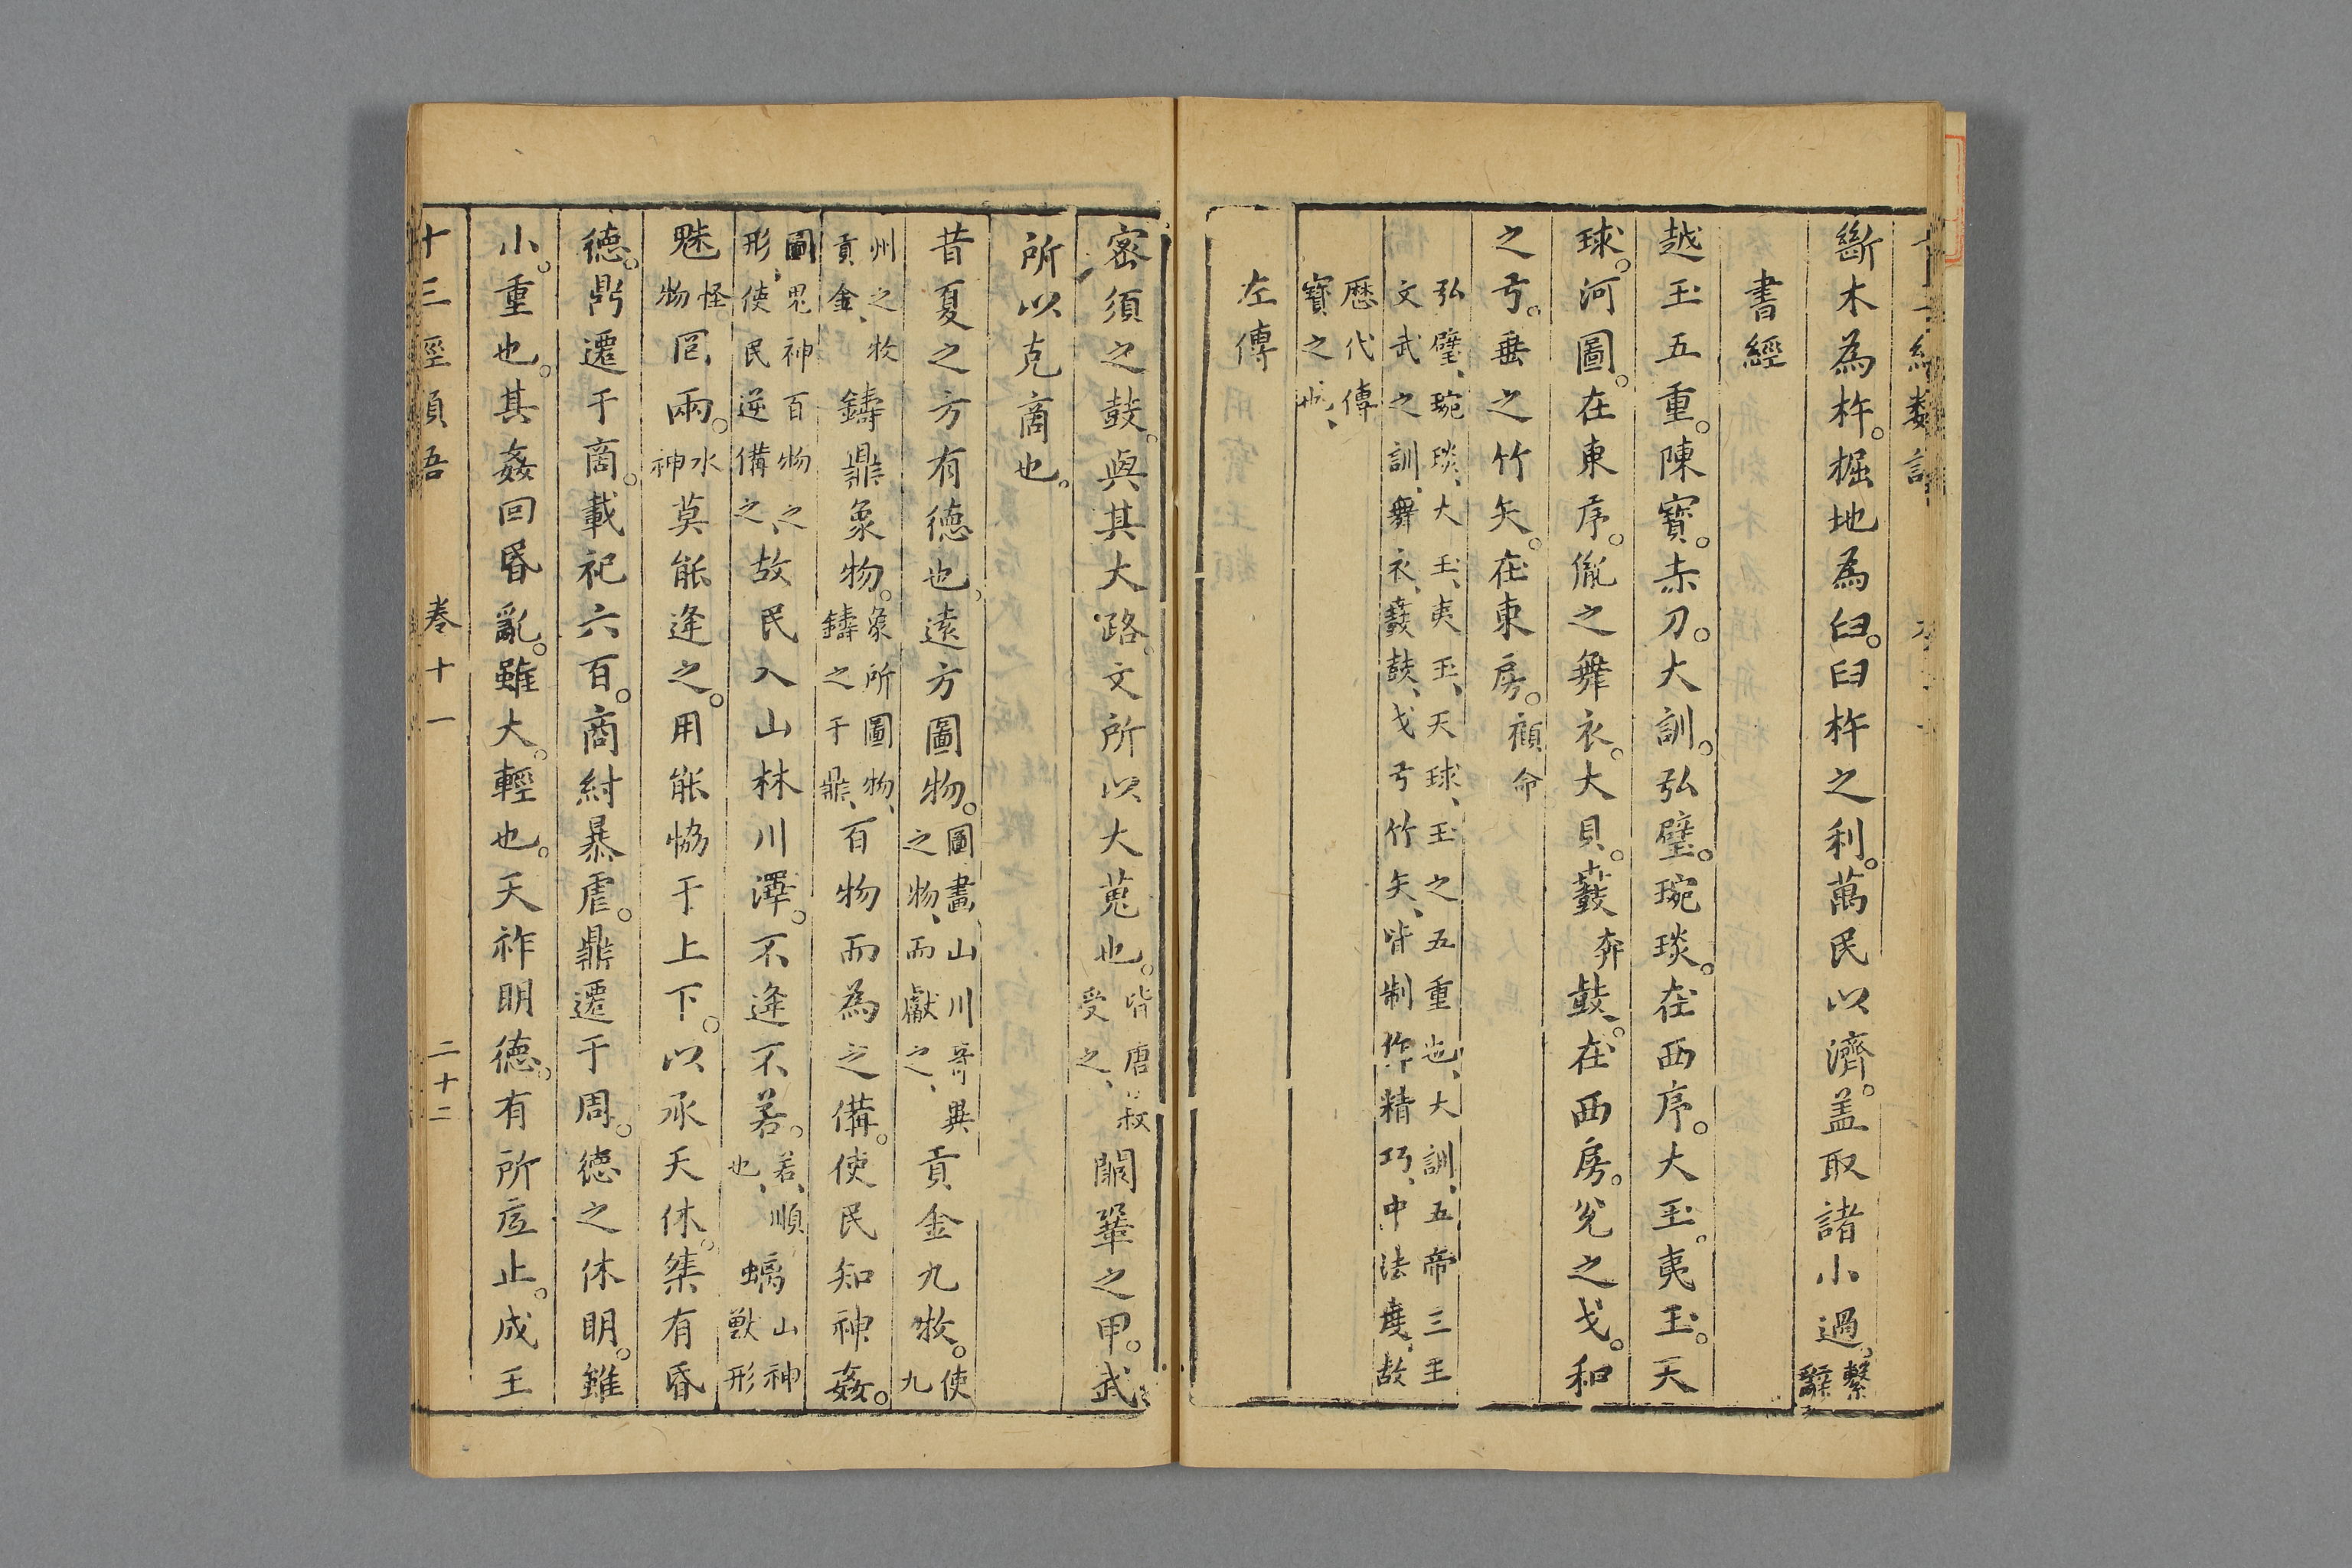 斷木為杵。掘地為臼。臼杵之利。萬民以濟。盖取諸小過。繫辭
書經
越玉五重。陳寶。赤刀。大訓。弘璧。琬琰。在西序。大玉。夷玉。天
球。河圖。在東序。胤之舞衣。大貝。鼖奔鼓。在西房。兊之戈。和
之弓。垂之竹矢。在東房。顧命
弘璧、琬琰、大玉、夷玉、天球、玉之五重也、大訓、五帝三王
文武之訓、舞衣、鼖鼓、戈弓竹矢、皆制作精巧、中法度、故
歷代傳
寶之也、
左傳
密須之鼓。與其大路。文所以大蒐也。皆唐叔受之、闕鞏之甲。武
所以克商也。
昔夏之方有德也。遠方圖物。圖畫山川奇異之物、而獻之、貢金九牧。使九
州之牧貢金、鑄鼎象物。象所圖物、鑄之于鼎、百物而為之備。使民知神姦。
圖鬼神百物之形、使民逆備之、故民入山林川澤。不逢不若。若、順也、螭山神獸形
魅怪物罔兩。水神莫能逢之。用能恊于上下。以承天休。桀有昏
德。鼎遷于商。載祀六百。商紂暴虐。鼎遷于周。德之休明。雖
小。重也。其姦回昏亂。雖大。輕也。天祚明德。有所底止。成王
十三經類語 卷十一 二十二